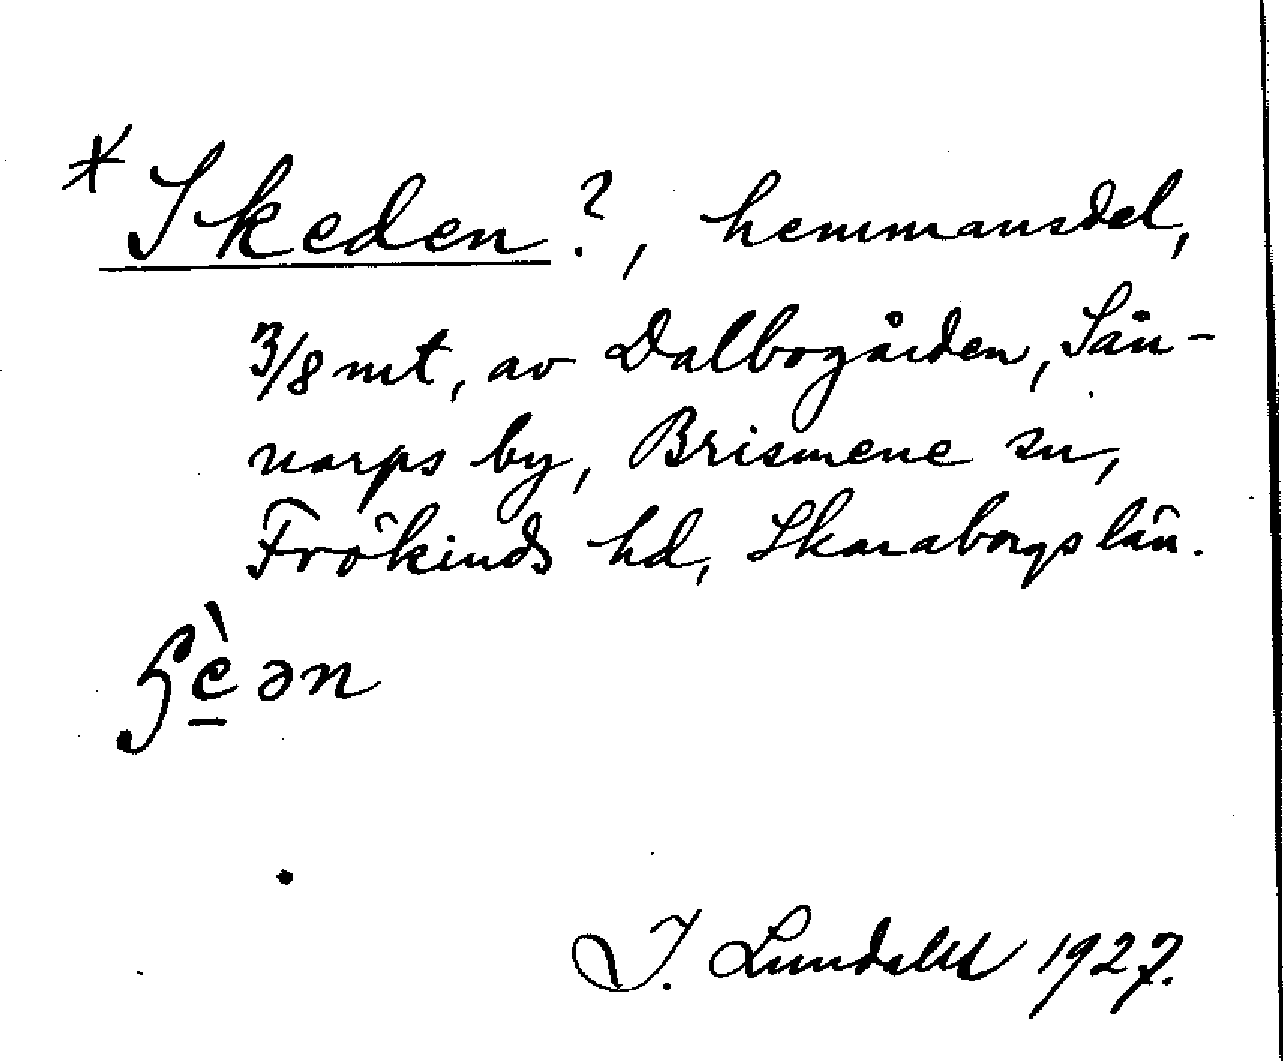 * Skeden?, hemmansdel,
3/8 mt, av Dalbogården, Sän-
narps by, Brismene sn,
Frökinds hd, Skaraborgs län.
ən
I. Lundahl 1927.